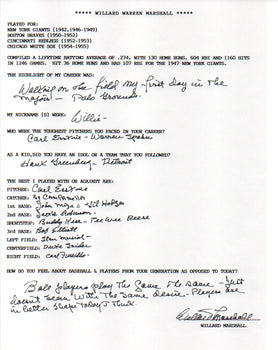 ***** WILLARD WARREN MARSHALL *****
PLAYED FOR:
NEW YORK GIANTS (1942,1946-1949)
BOSTON BRAVES (1950-1952)
CINCINNATI REDLEGS (1952-1953)
CHICAGO WHITE SOX (1954-1955)
COMPILED A LIFETIME BATTING AVERAGE OF .274, WITH 130 HOME RUNS, 604 RBI AND 1160 HITS
IN 1246 GAMES. HIT 36 HOME RUNS AND HAD 107 RBI FOR THE 1947 NEW YORK GIANTS.
THE HIGHLIGHT OF MY CAREER WAS:
Walking on the field my first day in the
majors - Polo Grounds.
MY NICKNAME (S) WERE: Willie
WHO WERE THE TOUGHEST PITCHERS YOU FACED IN YOUR CAREER?
Carl Erskine - Warren Spahn
AS A KID,DID YOU HAVE AN IDOL OR A TEAM THAT YOU FOLLOWED?
Hank Greenberg - Detroit
THE BEST I PLAYED WITH OR AGAINST ARE:
PITCHER: Carl Erskine
CATCHER: Roy Campanella
1st BASE: John Mize - Gil Hodges
2nd BASE: Jackie Robinson
SHORTSTOP: Buddy Kerr - Pee Wee Reese
3rd BASE: Bob Elliott
LEFT FIELD: Stan Musial
CENTERFIELD: Duke Snider
RIGHT FIELD: Carl Furillo
HOW DO YOU FEEL ABOUT BASEBALL & PLAYERS FROM YOUR GENERATION AS OPPOSED TO TODAY?
Ball players play the same the game - Just
doesn't seem with the same desire - Players are
in better shape today I think.
Willard Marshall
WILLARD MARSHALL